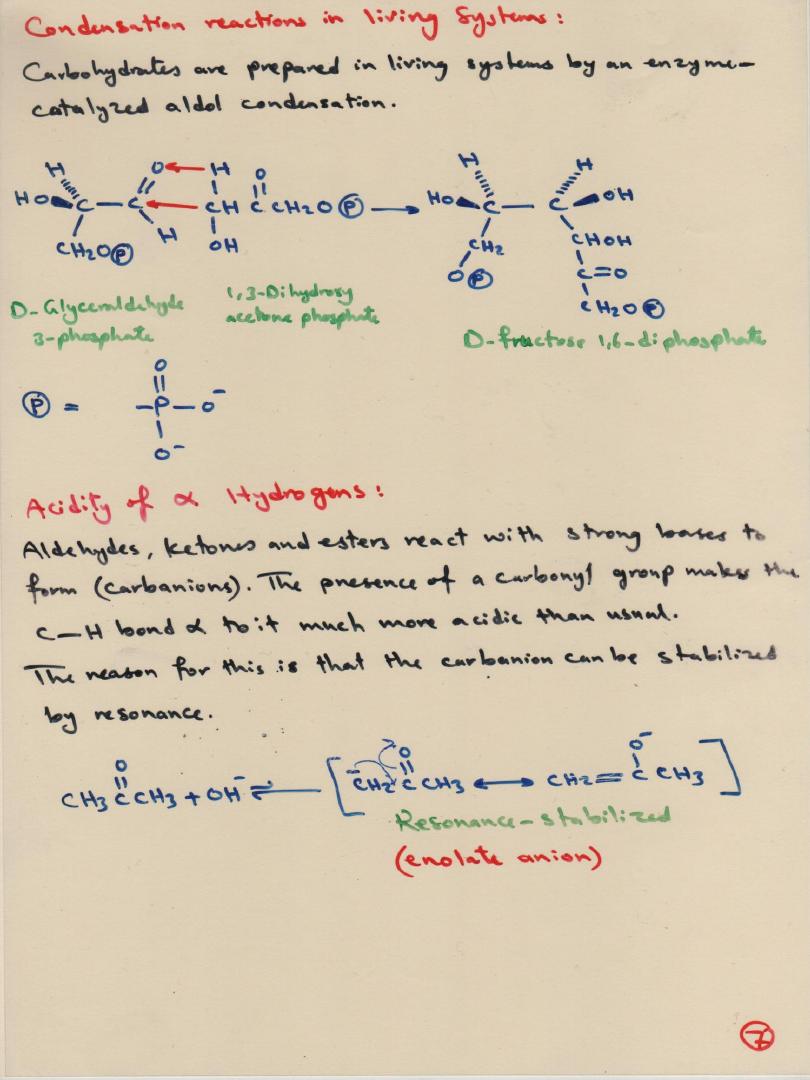 Condensation reactions in living Systems:
Carbohydrates are prepared in living systems by an enzyme-
catalyzed aldol condensation.
H O ← H O H H
HO C — C ← CH C CH2O P → HO C — C OH
CH2O P H OH CH2 CHOH
O P C=O
CH2O P
D-Glyceraldehyde 1,3-Dihydroxy
3-phosphate acetone phosphate
D-fructose 1,6-diphosphate
O
P = —P—O⁻
O⁻
Acidity of α Hydrogens:
Aldehydes, ketones and esters react with strong bases to
form (carbanions). The presence of a carbonyl group makes the
C—H bond α to it much more acidic than usual.
The reason for this is that the carbanion can be stabilized
by resonance.
O O O⁻
CH3 C CH3 + OH⁻ ⇌ [ ⁻CH2 C CH3 ⟷ CH2=C CH3 ]
Resonance-stabilized
(enolate anion)
7